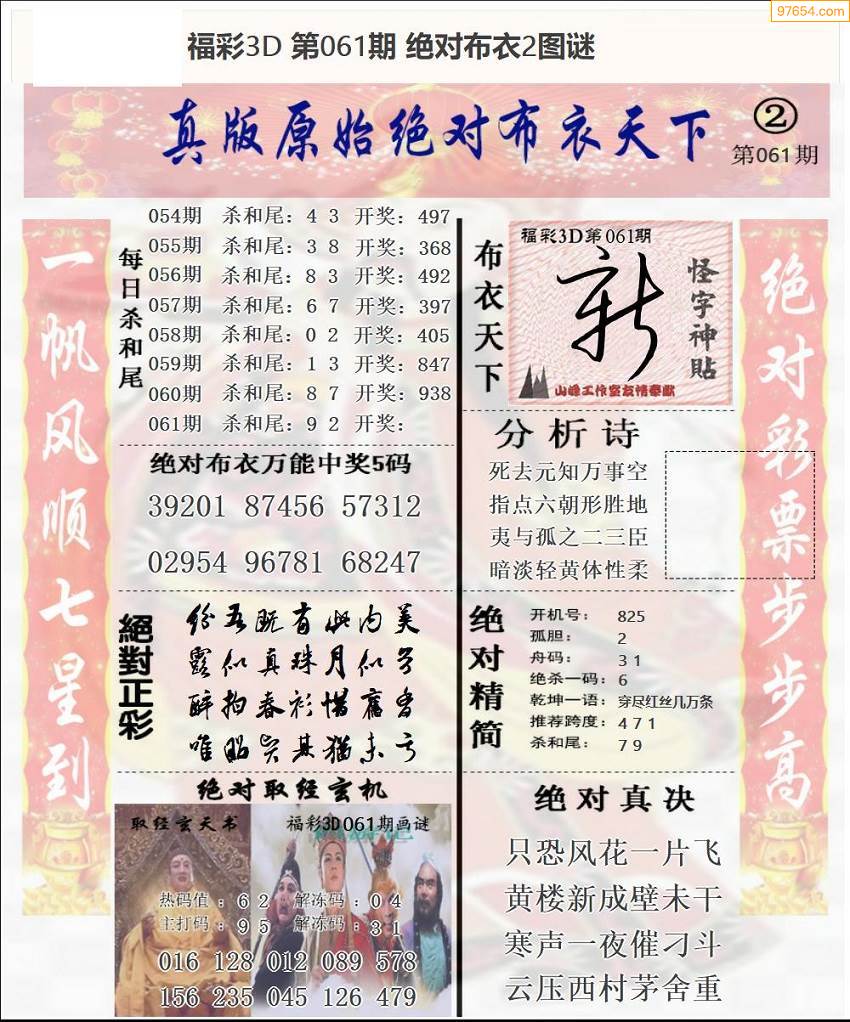 97654.com
福彩3D 第061期 绝对布衣2图谜
真版原始绝对布衣天下
②
第061期
一帆风顺七星到
每日杀和尾
054期 杀和尾：4 3 开奖：497
055期 杀和尾：3 8 开奖：368
056期 杀和尾：8 3 开奖：492
057期 杀和尾：6 7 开奖：397
058期 杀和尾：0 2 开奖：405
059期 杀和尾：1 3 开奖：847
060期 杀和尾：8 7 开奖：938
061期 杀和尾：9 2 开奖：
绝对布衣万能中奖5码
39201 87456 57312
02954 96781 68247
絕對正彩
纷吾既有此内美
露似真珠月似弓
醉拍春衫惜舊香
绝对取经玄机
取经玄天书
福彩3D061期画谜
热码值：6 2 解冻码：0 4
主打码：9 5 解冻码：3 1
016 128 012 089 578
156 235 045 126 479
布衣天下
福彩3D第061期
新
怪字神贴
山峰工作室友情奉献
分析诗
死去元知万事空
指点六朝形胜地
夷与孤之二三臣
暗淡轻黄体性柔
绝对精简
开机号： 825
孤胆： 2
舟码： 3 1
绝杀一码：6
乾坤一语：穿尽红丝几万条
推荐跨度：4 7 1
杀和尾： 7 9
绝对真决
只恐风花一片飞
黄楼新成壁未干
寒声一夜催刁斗
云压西村茅舍重
绝对彩票步步高